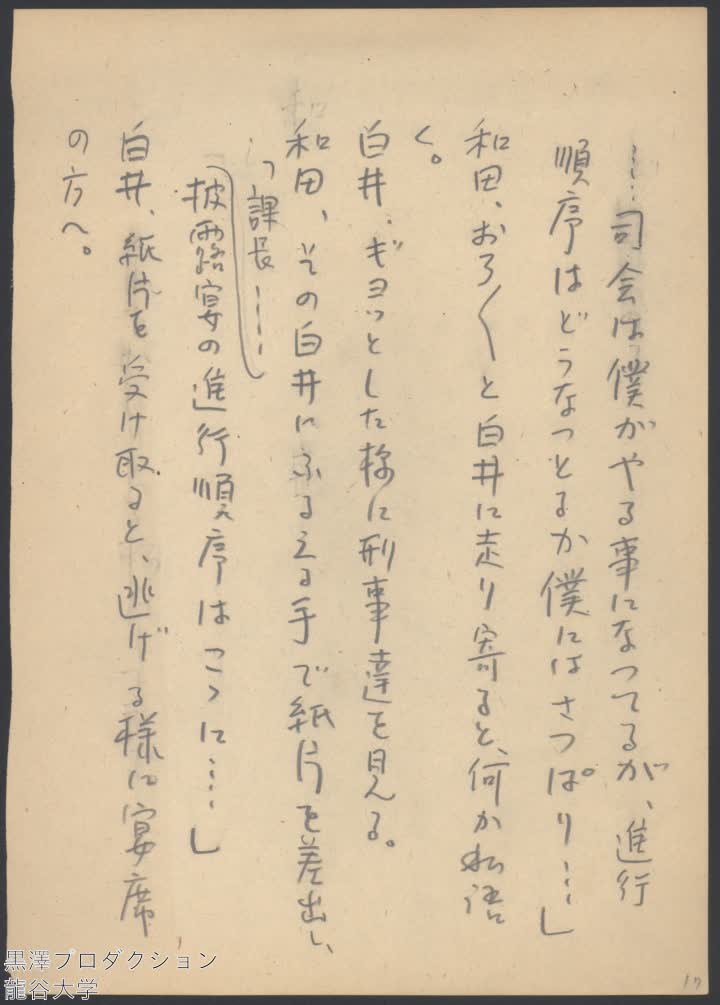 ……司会は僕がやる事になつてるが、進行
順序はどうなつとるか僕にはさつぱり……」
和田、おろ〱と白井に走り寄ると、何か私語
く。
白井、ギョッとした様に刑事達を見る。
和田、その白井にふるえる手で紙片を差出し、
「課長……
披露宴の進行順序はこゝに……」
白井、紙片を受け取ると、逃げる様に宴席
の方へ。
17
黒澤プロダクション
龍谷大学